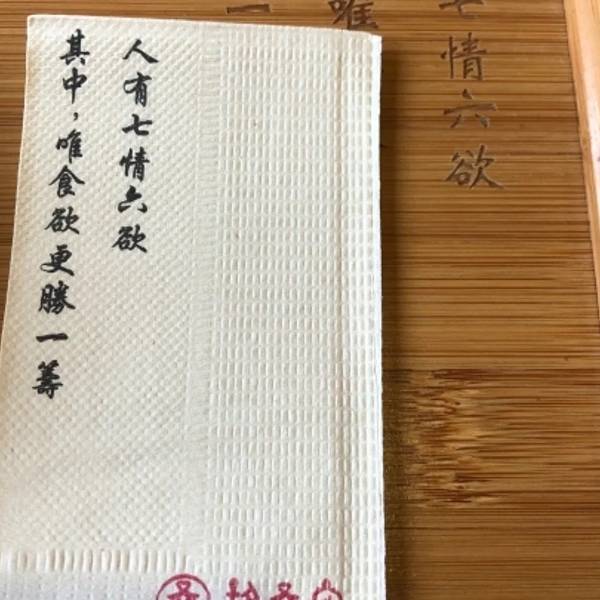 人有七情六欲
其中，唯食欲更勝一籌
七情六欲
唯
一